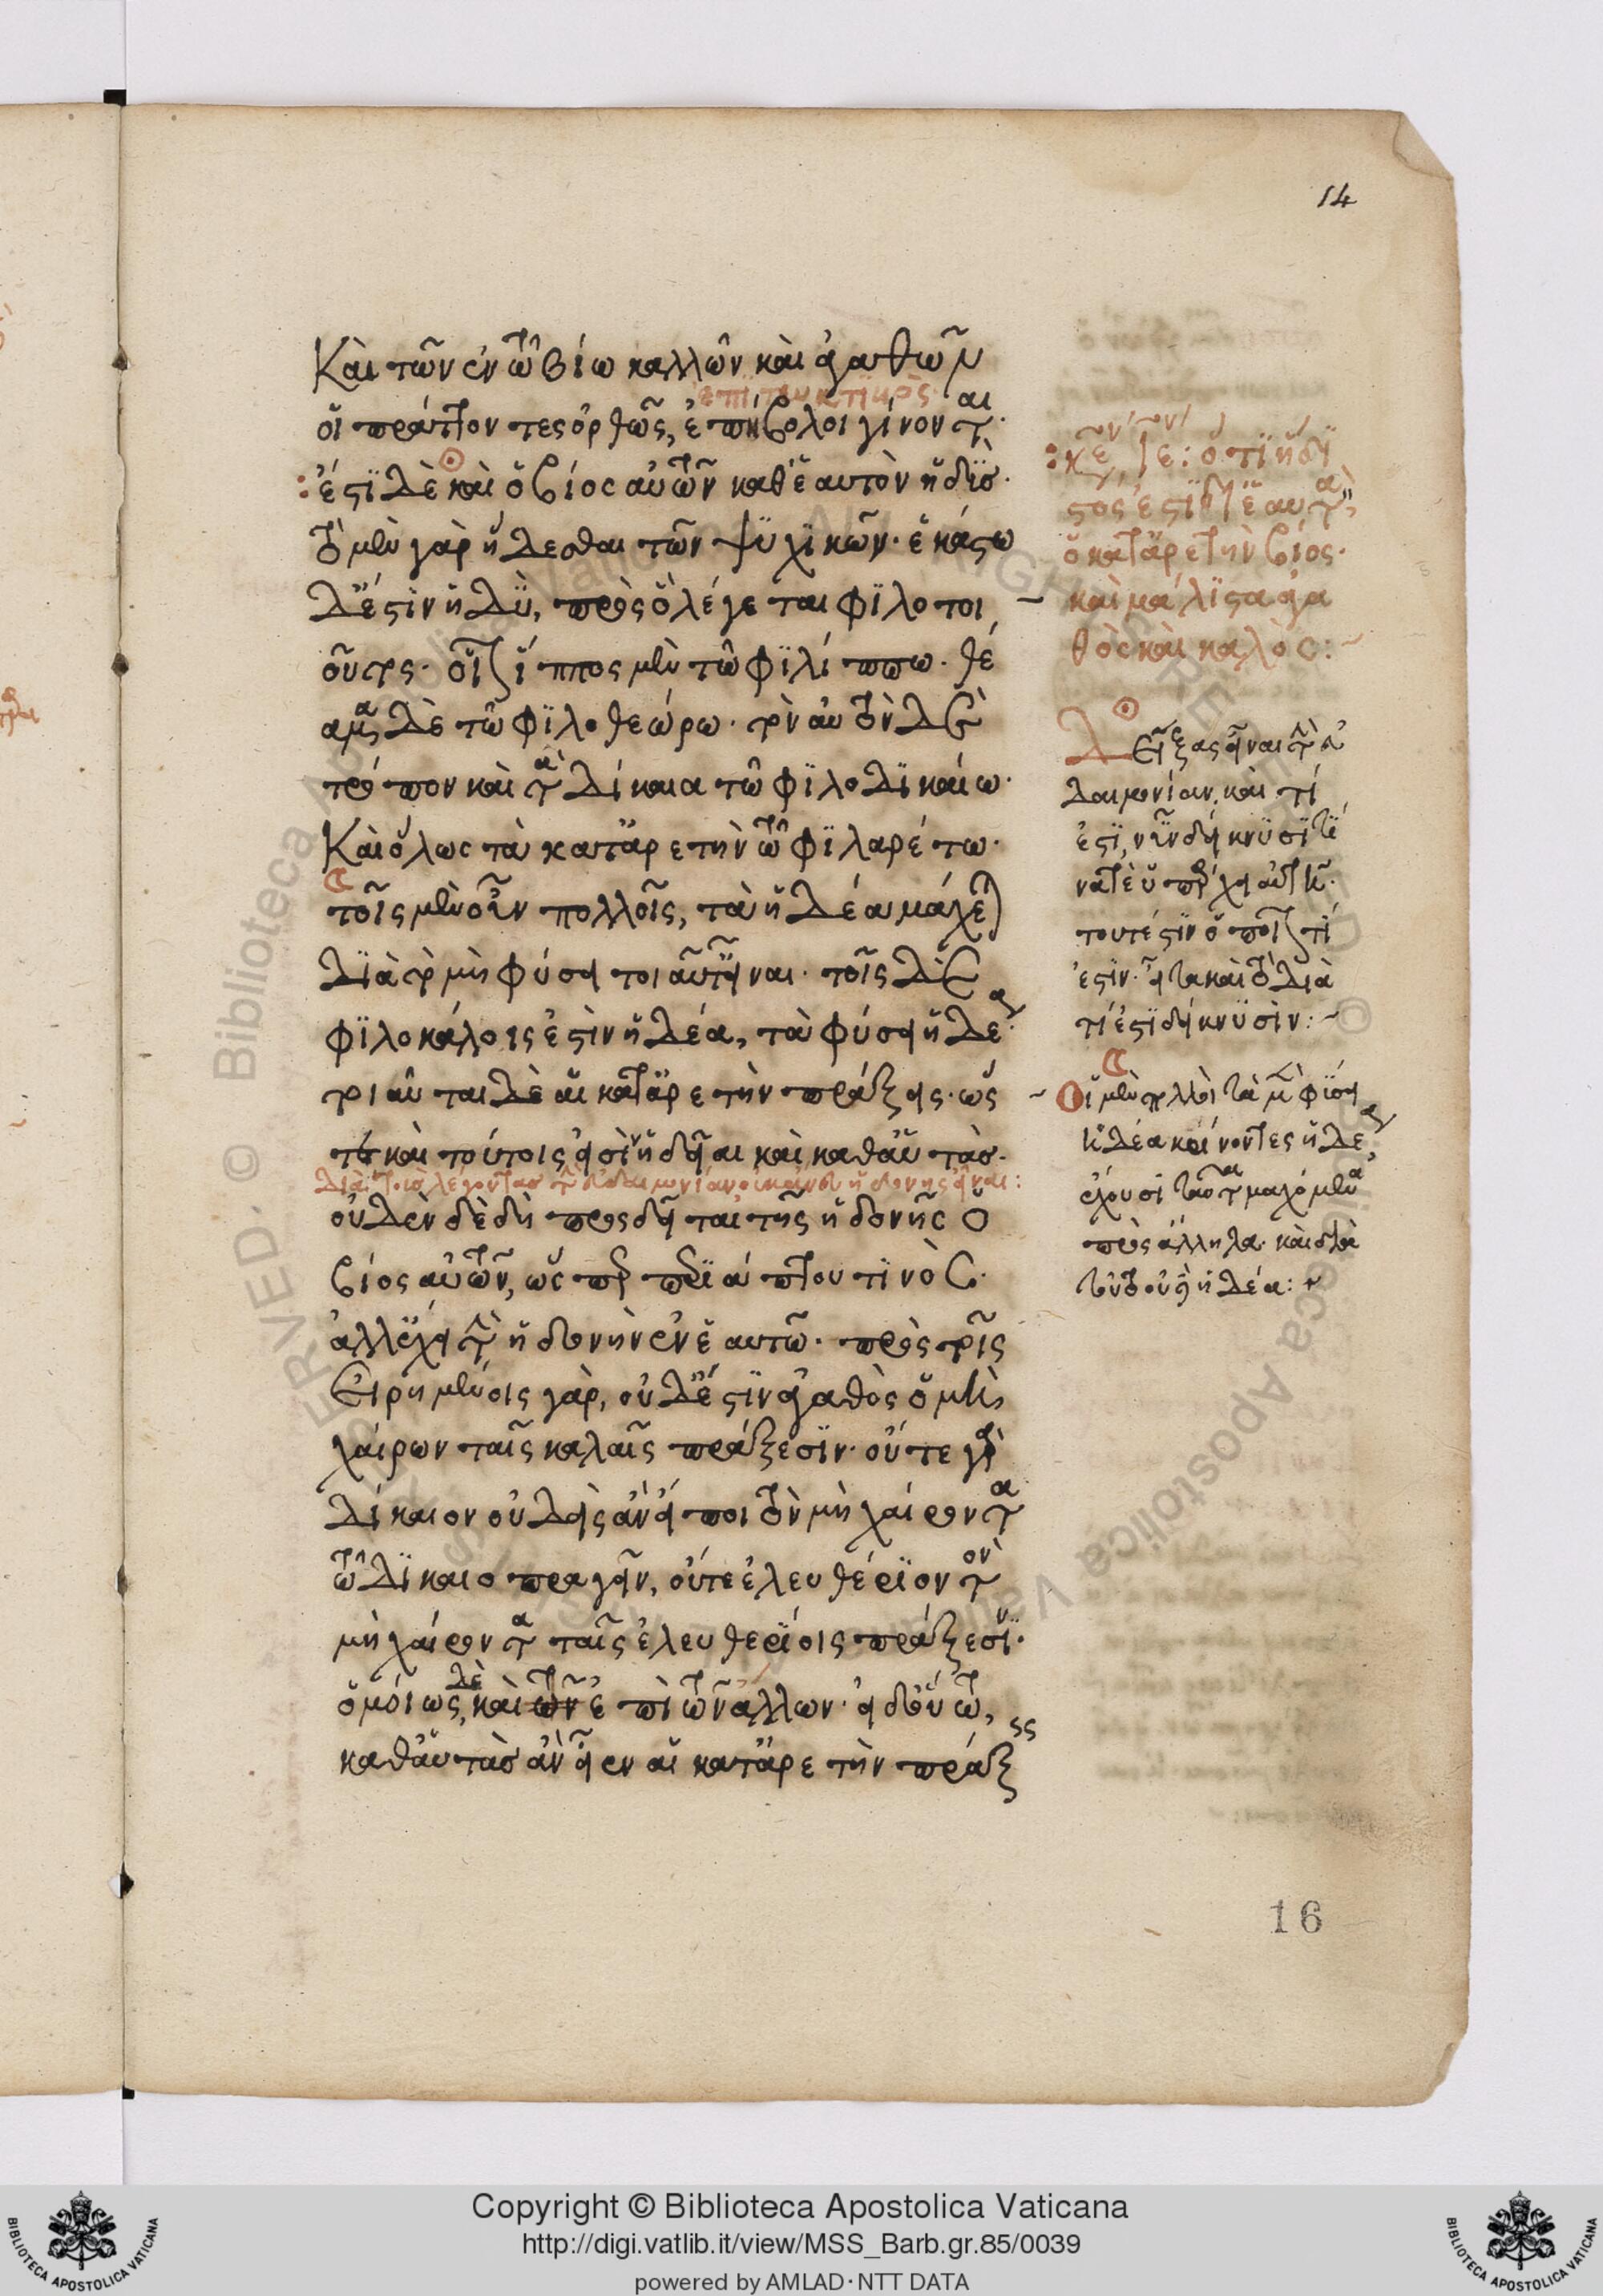 14
Καὶ τῶν ἐν τῶ βίω καλλῶν καὶ ἀγαθῶν
ἐπιτευκτικὸς
οἱ πράττοντες ὀρθῶς, ἐπίβολοι γίνονται·
ἐστϊ δὲ καὶ ὁ βίος αὐτῶν καθ ἑαυτὸν ἡδϋσ·
τὸ μὲν γὰρ ἥδεσθαι τῶν ψϋχϊκῶν· ἑκάστω
δ ἐστϊν ἡδϋ, πρὸς ὃ λέγεται φϊλοτοι
οῦτος· οἷον ἵππος μὲν τῶ φϊλίππω· θέ
αμα δὲ τῶ φϊλοθεώρω· τὸν αὐτὸν δὲ
τρόπον καὶ τὰ δίκαια τῶ φϊλοδϊκαίω·
Καὶ ὅλως τὰ κατ ἀρετὴν τῶ φϊλαρέτω·
τοῖς μὲν οὖν πολλοῖς, τὰ ἡδέα μάχεται
δϊὰ τὸ μὴ φύσει τοιαῦτ εἶναι· τοῖς δὲ
φϊλοκάλοις ἐστὶν ἡδέα, τὰ φύσει ἡδέα·
τοιαῦται δὲ αἱ κατ ἀρετὴν πράξεις· ὥς
τε καὶ τούτοις εἰσὶν ἡδεῖαι καὶ καθ αὑτάσ·
Διὰ τοὺσ λέγοντασ τὴν εὐδαιμονίαν οὐκ ἄνευ ἡδονῆς εἶναι:
οὐδὲν δὲ δὴ προσδεῖται τῆς ἡδονῆς ὁ
βίος αὐτῶν, ὥσπερ περϊάπτου τϊνὸς·
ἀλλ ἔχει τὴν ἡδονὴν ἐν ἑαυτῶ· πρὸς τοῖς
Εἰρημένοις γὰρ, οὐδ ἐστϊν ἀγαθὸς ὁ μὴ
χαίρων ταῖς καλαῖς πράξεσϊν· οὔτε γὰρ
δίκαιον οὐδεὶς ἂν εἴποι τὸν μὴ χαίροντα
τῶ δϊκαιοπραγεῖν, οὔτε ἐλευθέρϊον τὸν
μὴ χαίροντα ταῖς ἐλευθερϊοις πράξεσϊν·
ὁμοίως δὲ καὶ τῶν ἐπὶ τῶν ἄλλων· εἰ δ οὕτω,
καθ αὑτὰσ ἂν εἶεν αἱ κατ ἀρετὴν πράξεις
ὅτϊ ἥδϊ
στός ἐστϊ δι ἑαυτὰ,
ὁ κατ ἀρετὴν βίος·
καὶ μάλϊστα ἀγα
θὸς καὶ καλὸς:
Δείξας εἶναι τὴν εὐ
δαιμονίαν, καὶ τί
ἐστϊ, νῦν δείκνϋσϊ τί
τουτέστϊν ὁποῖον τί
ἐστϊν· εἶτα καὶ τὸ διὰ
τί ἐστϊ δείκνϋσϊν:
Οἱ μὲν πολλοὶ τὰ μὴ φϋσει
ἡδέα κρίνοντες ἡδέα,
ἔχουσι ταῦτα μαχόμενα
πρὸς ἄλληλα· καὶ διὰ
τοῦτο οὐχ ἡδέα:
16
Copyright © Biblioteca Apostolica Vaticana
http://digi.vatlib.it/view/MSS_Barb.gr.85/0039
powered by AMLAD·NTT DATA